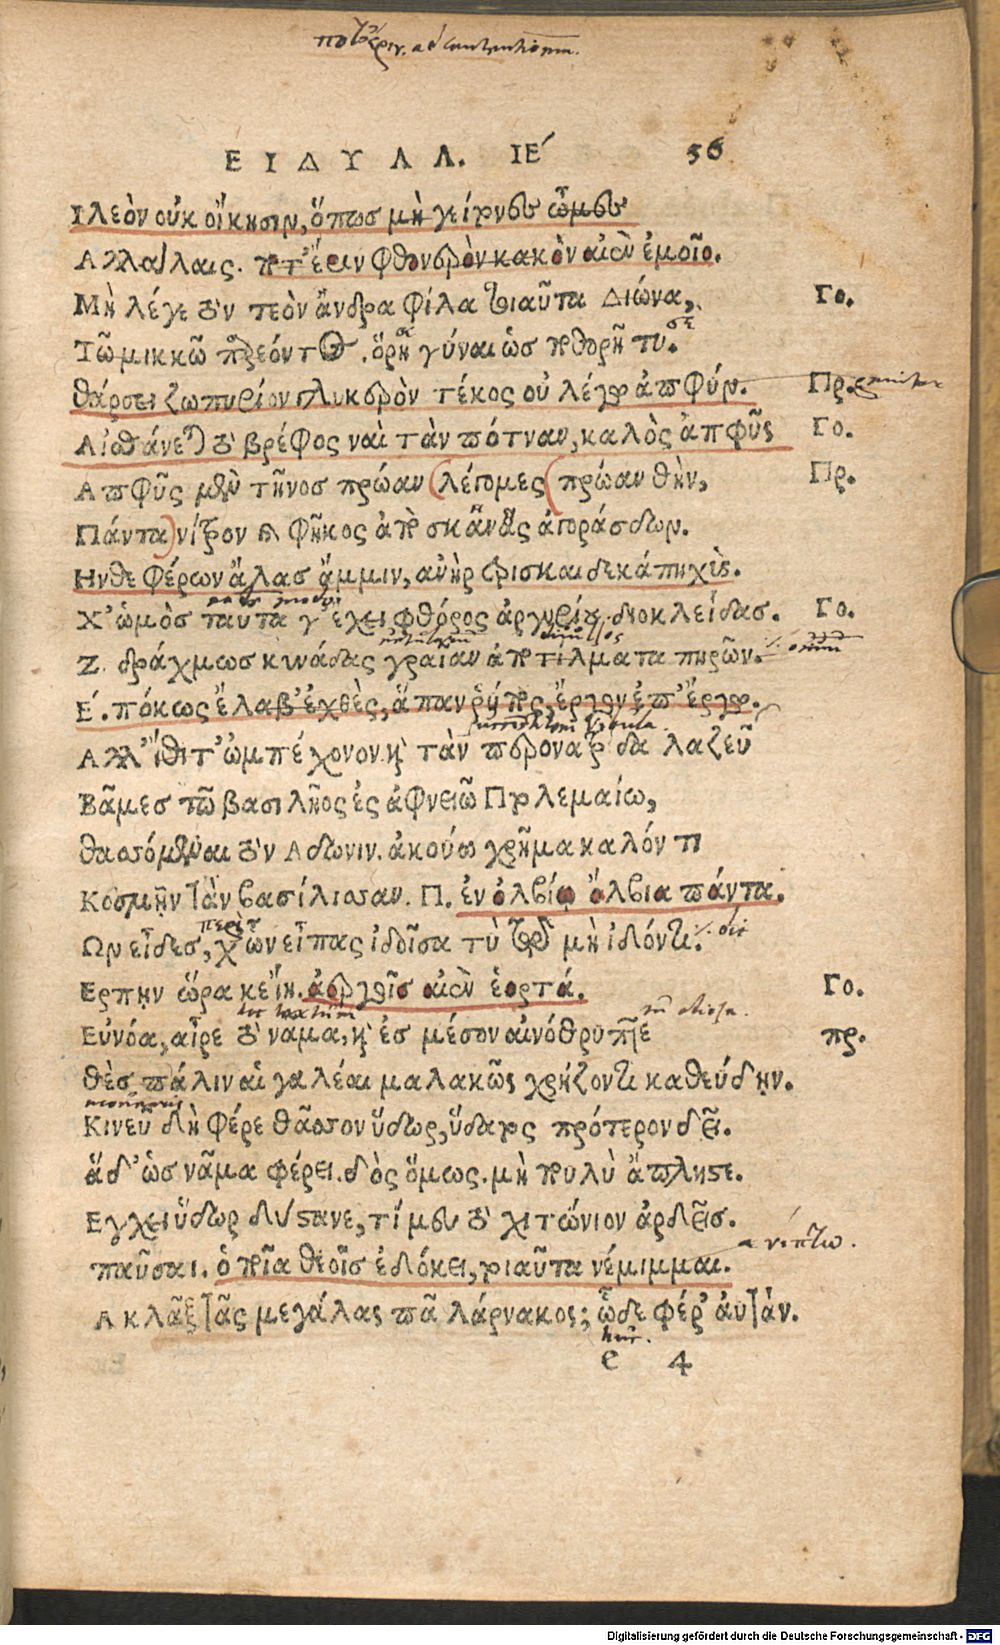 ΕΙΔΥΛΛ. ΙΕ΄ 56
Ιλεὸν οὐκ οἴκησιν, ὅπως μὴ γείτονες ὦμες
Αλλάλαις. ποτ' ἔριν φθονερὸν κακὸν αἰὲν ἐμοῖο.
Μὴ λέγε τὸν τεὸν ἄνδρα φίλα τοιαῦτα Διώνα, Γο.
Τῶ μικκῶ παρεόντος. ὅρη γύναι ὡς ποθορῆ τυ.
Θάρσει ζωπυρίον γλυκερὸν τέκος οὐ λέγω ἀπφύν. Πρ.
Αἰσθάνεται τὸ βρέφος ναὶ τὰν πότναν, καλὸς ἀπφῦς Γο.
Απφῦς μὲν τῆνος πρώαν (λέγομες (πρώαν θὴν, Πρ.
Πάντα) νίτρον καὶ φῦκος ἀπὸ σκανᾶς ἀγοράσδων.
Ηνθε φέρων ἅλας ἄμμιν, ἀνὴρ τρισκαιδεκάπηχις.
Χ' ὡμὸς ταῦτα γ' ἔχει φθόρος ἀργυρίου διοκλείδας. Γο.
Ζ. δράχμως κυνάδας γραίαν ἀποτίλματα πηρῶν.
Ε΄. πόκως ἔλαβ' ἐχθὲς, ἅπαν ῥύπος, ἔργον ἐπ' ἔργω.
Αλλ' ἴθι τ' ὠμπέχονον καὶ τὰν περοναρίδα λαζεῦ
Βᾶμες τῶ βασιλῆος ἐς ἀφνειῶ Πτολεμαίω,
Θασόμεναι τὸν Αδωνιν. ἀκούω χρῆμα καλόν τι
Κοσμῆν τὰν βασίλισσαν. Π. ἐν ὀλβίῳ ὄλβια πάντα.
Ων εἶδες, χ' ὧν εἶπας ἰδοῖσα τὺ τῷ μὴ ἰδόντι.
Ερπην ὥρα κ' εἴη. ἀεργοῖς αἰὲν ἑορτά. Γο.
Εὐνόα, αἶρε τὸ νᾶμα, καὶ ἐς μέσον αἰνόθρυπτε Πρ.
Θὲς πάλιν αἱ γαλέαι μαλακῶς χρήζοντι καθεύδην.
Κινεῦ δὴ φέρε θᾶσσον ὕδωρ, ὕδατος πρότερον δεῖ.
ἅδ' ὡς νᾶμα φέρει. δὸς ὅμως. μὴ πουλὺ ἄπληστε.
Εγχει ὕδωρ δύστανε, τί μευ τὸ χιτώνιον ἄρδεις.
παῦσαι. ὁποῖα θεοῖς ἐδόκει, τοιαῦτα νένιμμαι.
Α κλᾲξ τᾶς μεγάλας πᾶ λάρνακος; ὧδε φέρ' αὐτάν.
e 4
Digitalisierung gefördert durch die Deutsche Forschungsgemeinschaft - DFG